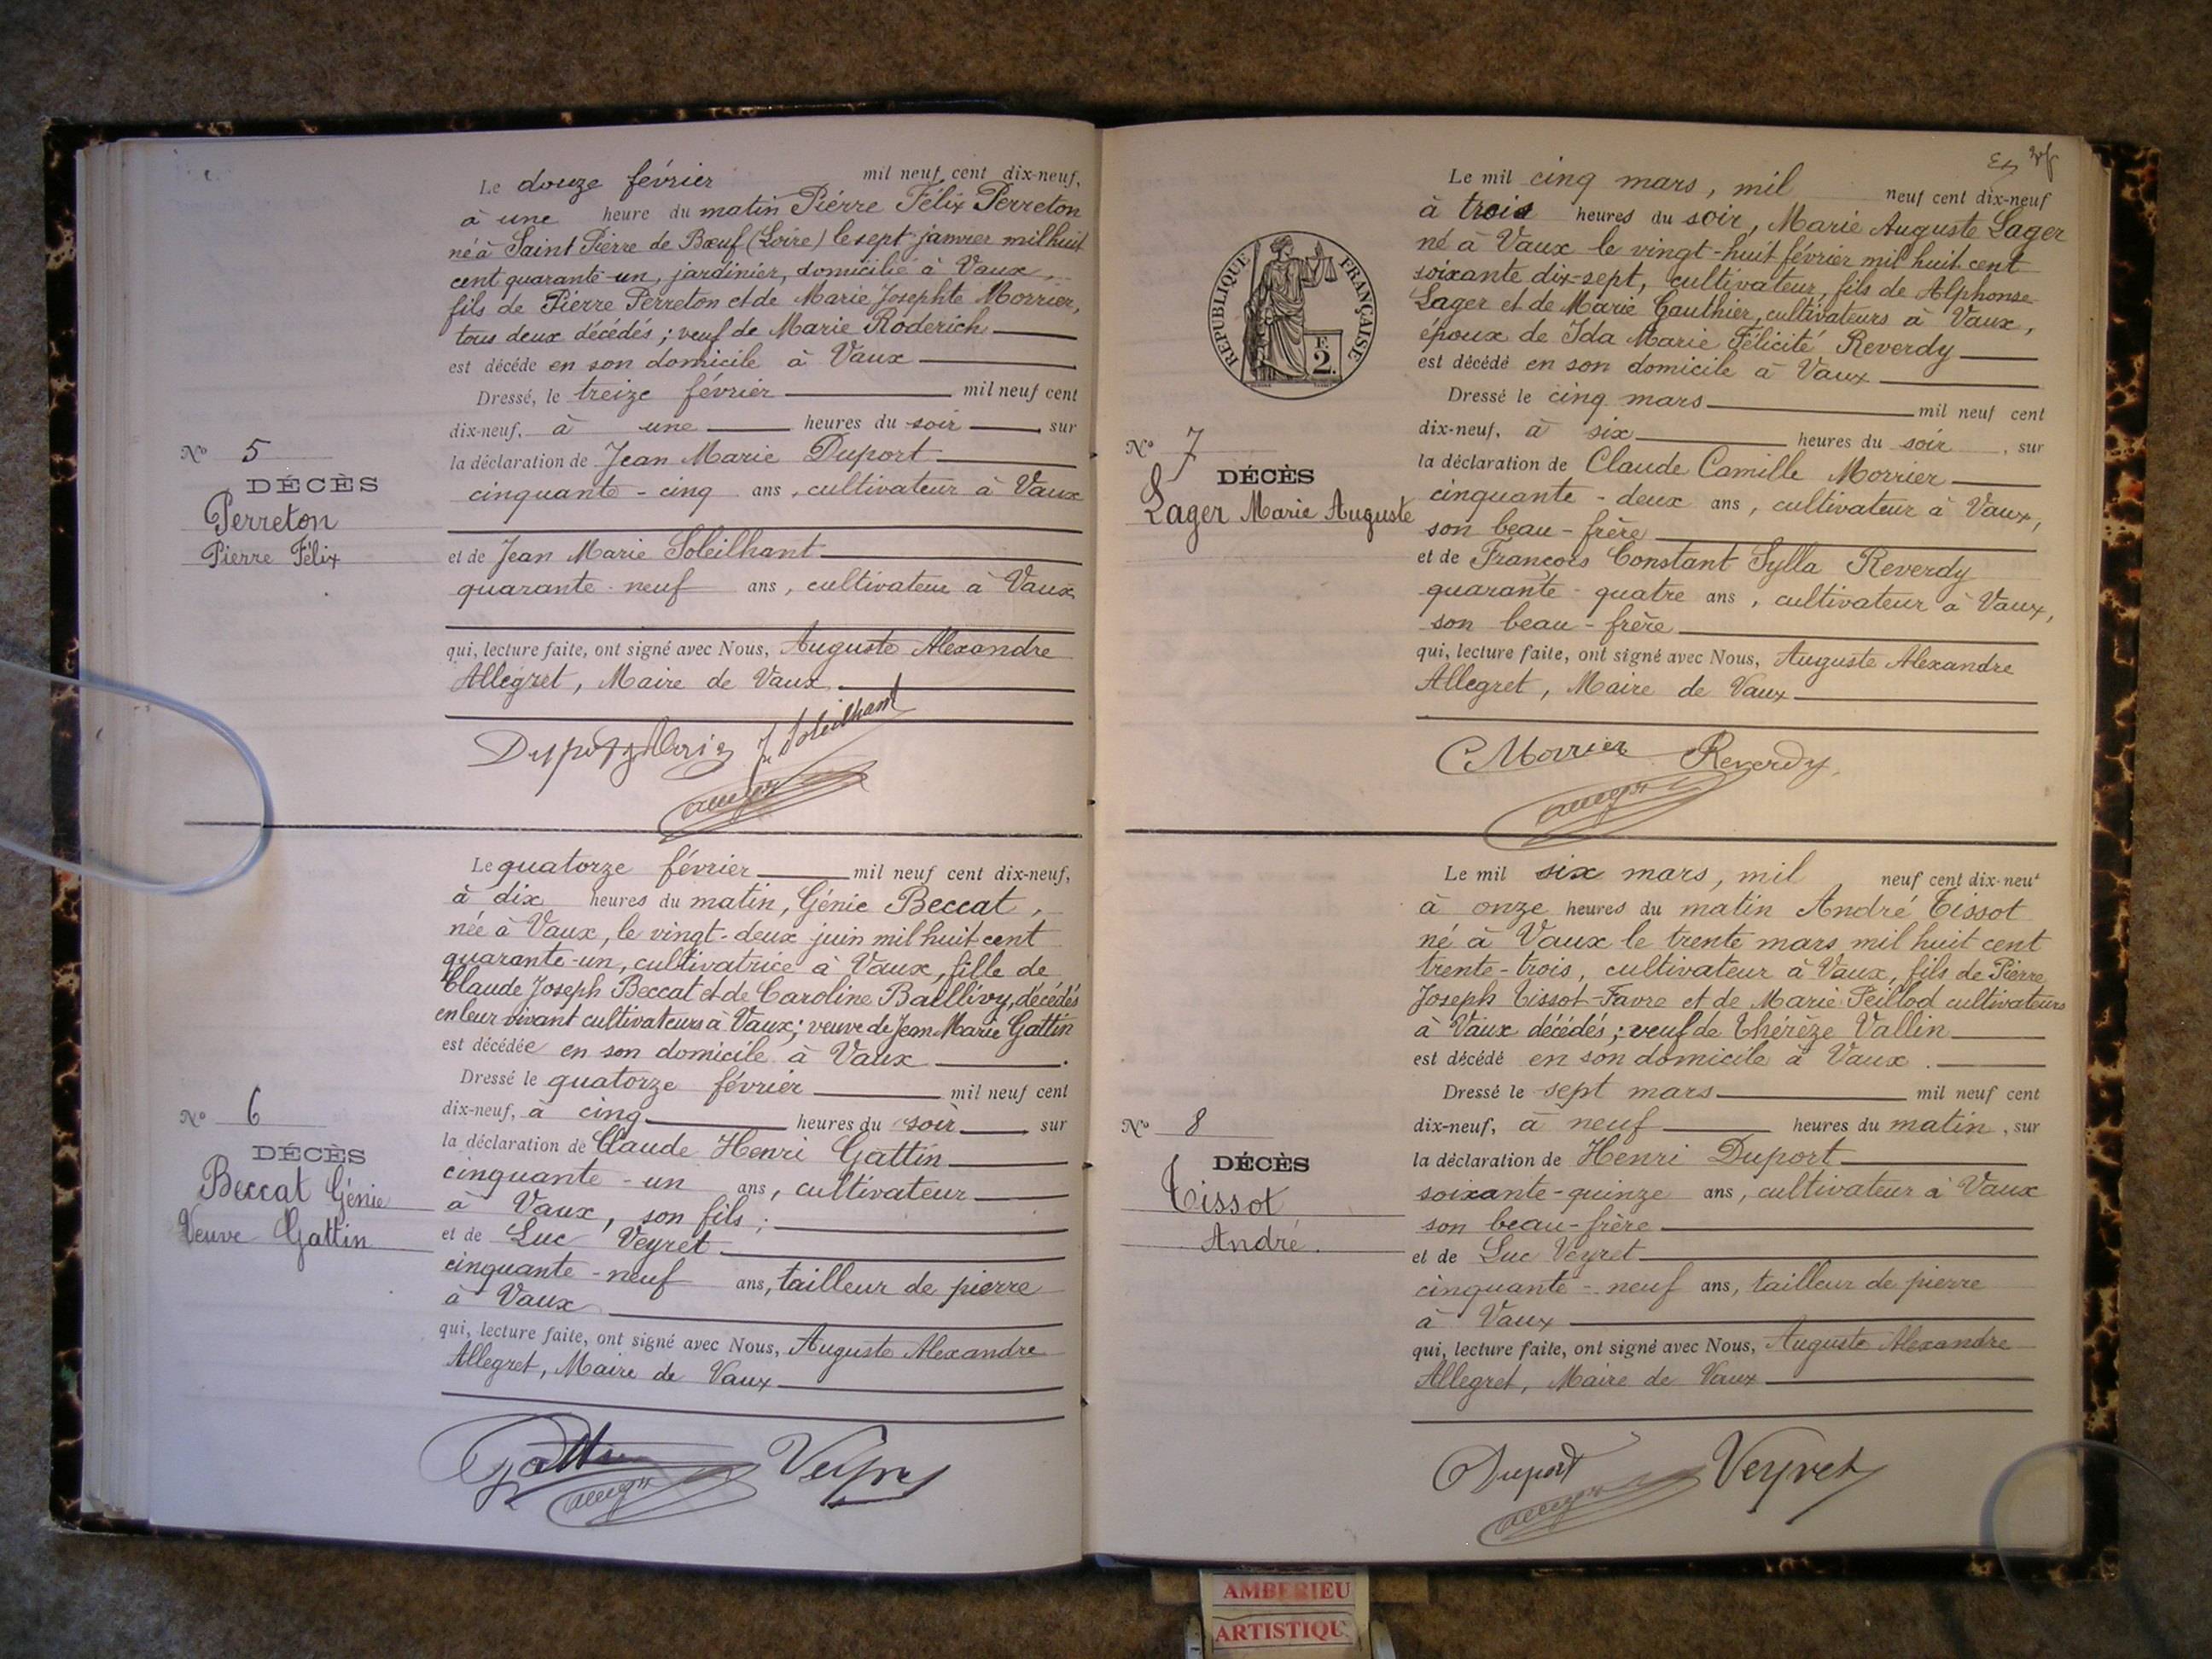 Le douze février mil neuf cent dix-neuf,
à une heure du matin Piérre Félix Perreton
né à Saint Piérre de Bœuf (Loire) le sept janvier mil huit
cent quarante-un, jardinier, domicilié à Vaux,
fils de Piérre Perreton et de Marie Josephte Morrier,
tous deux décédés ; veuf de Marie Roderich
est décédé en son domicile à Vaux
Dressé, le treize février mil neuf cent
dix-neuf, à une heures du soir, sur
la déclaration de Jean Marie Duport
cinquante-cinq ans, cultivateur à Vaux
et de Jean Marie Soleilhant
quarante-neuf ans, cultivateur à Vaux
qui, lecture faite, ont signé avec Nous, Auguste Alexandre
Allegret, Maire de Vaux
J Soleilhant
No 5
DÉCÈS
Perreton
Pierre Félix
Le quatorze février mil neuf cent dix-neuf,
à dix heures du matin, Génie Beccat,
née à Vaux, le vingt-deux juin mil huit cent
quarante-un, cultivatrice à Vaux, fille de
Claude Joseph Beccat et de Caroline Baillivy, décédés
en leur vivant cultivateurs à Vaux ; veuve de Jean Marie Gattin
est décédée en son domicile à Vaux.
Dressé le quatorze février mil neuf cent
dix-neuf, à cinq heures du soir, sur
la déclaration de Claude Henri Gattin
cinquante-un ans, cultivateur
à Vaux, son fils ;
et de Luc Veyret
cinquante-neuf ans, tailleur de pierre
à Vaux
qui, lecture faite, ont signé avec Nous, Auguste Alexandre
Allegret, Maire de Vaux
Gattin Veyret
No 6
DÉCÈS
Beccat Génie
Veuve Gattin
RÉPUBLIQUE FRANÇAISE
F.
2.
Le mil cinq mars, mil neuf cent dix-neuf
à trois heures du soir, Marie Auguste Lager
né à Vaux le vingt-huit février mil huit cent
soixante dix-sept, cultivateur, fils de Alphonse
Lager et de Marie Gauthier, cultivateurs à Vaux,
époux de Ida Marie Félicité Reverdy
est décédé en son domicile à Vaux
Dressé le cinq mars mil neuf cent
dix-neuf, à six heures du soir, sur
la déclaration de Claude Camille Morrier
cinquante-deux ans, cultivateur à Vaux,
son beau-frère
et de François Constant Sylla Reverdy
quarante-quatre ans, cultivateur à Vaux,
son beau-frère
qui, lecture faite, ont signé avec Nous, Auguste Alexandre
Allegret, Maire de Vaux
C Morrier Reverdy
No 7
DÉCÈS
Lager Marie Auguste
Le mil six mars, mil neuf cent dix-neuf
à onze heures du matin André Tissot
né à Vaux le trente mars mil huit cent
trente-trois, cultivateur à Vaux, fils de Piérre
Joseph Tissot-Favre et de Marie Peillod cultivateurs
à Vaux décédés ; veuf de Thérèze Vallin
est décédé en son domicile à Vaux.
Dressé le sept mars mil neuf cent
dix-neuf, à neuf heures du matin, sur
la déclaration de Henri Duport
soixante-quinze ans, cultivateur à Vaux
son beau-frère
et de Luc Veyret
cinquante-neuf ans, tailleur de pierre
à Vaux
qui, lecture faite, ont signé avec Nous, Auguste Alexandre
Allegret, Maire de Vaux
Duport Veyret
No 8
DÉCÈS
Tissot
André.
AMBERIEU
ARTISTIQU